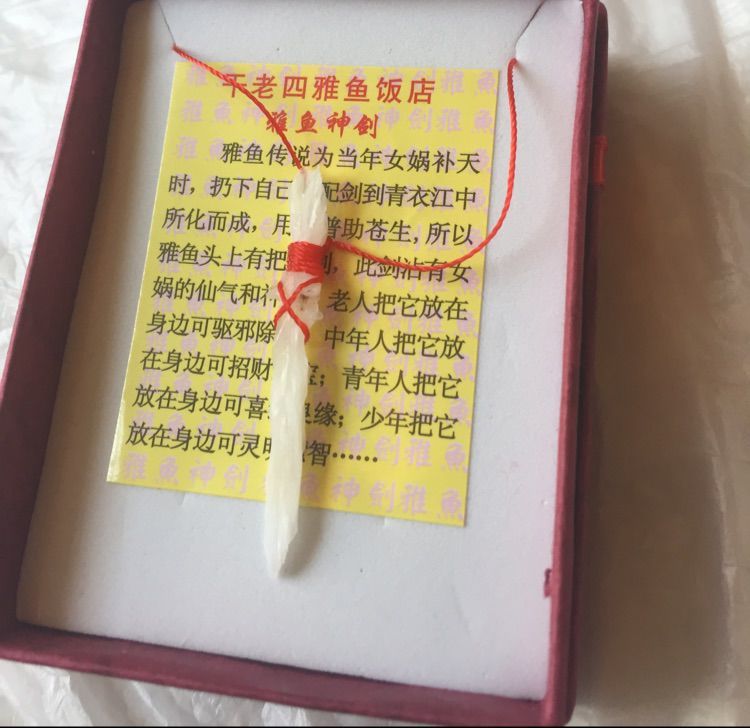 干老四雅鱼饭店
雅鱼神剑
雅鱼传说为当年女娲补天
时，扔下自己 配剑到青衣江中
所化而成，用 普助苍生，所以
雅鱼头上有把 剑，此剑沾有女
娲的仙气和神 老人把它放在
身边可驱邪除 中年人把它放
在身边可招财 宝；青年人把它
放在身边可喜 良缘；少年把它
放在身边可灵明 智……
雅魚神劍雅魚神劍雅魚